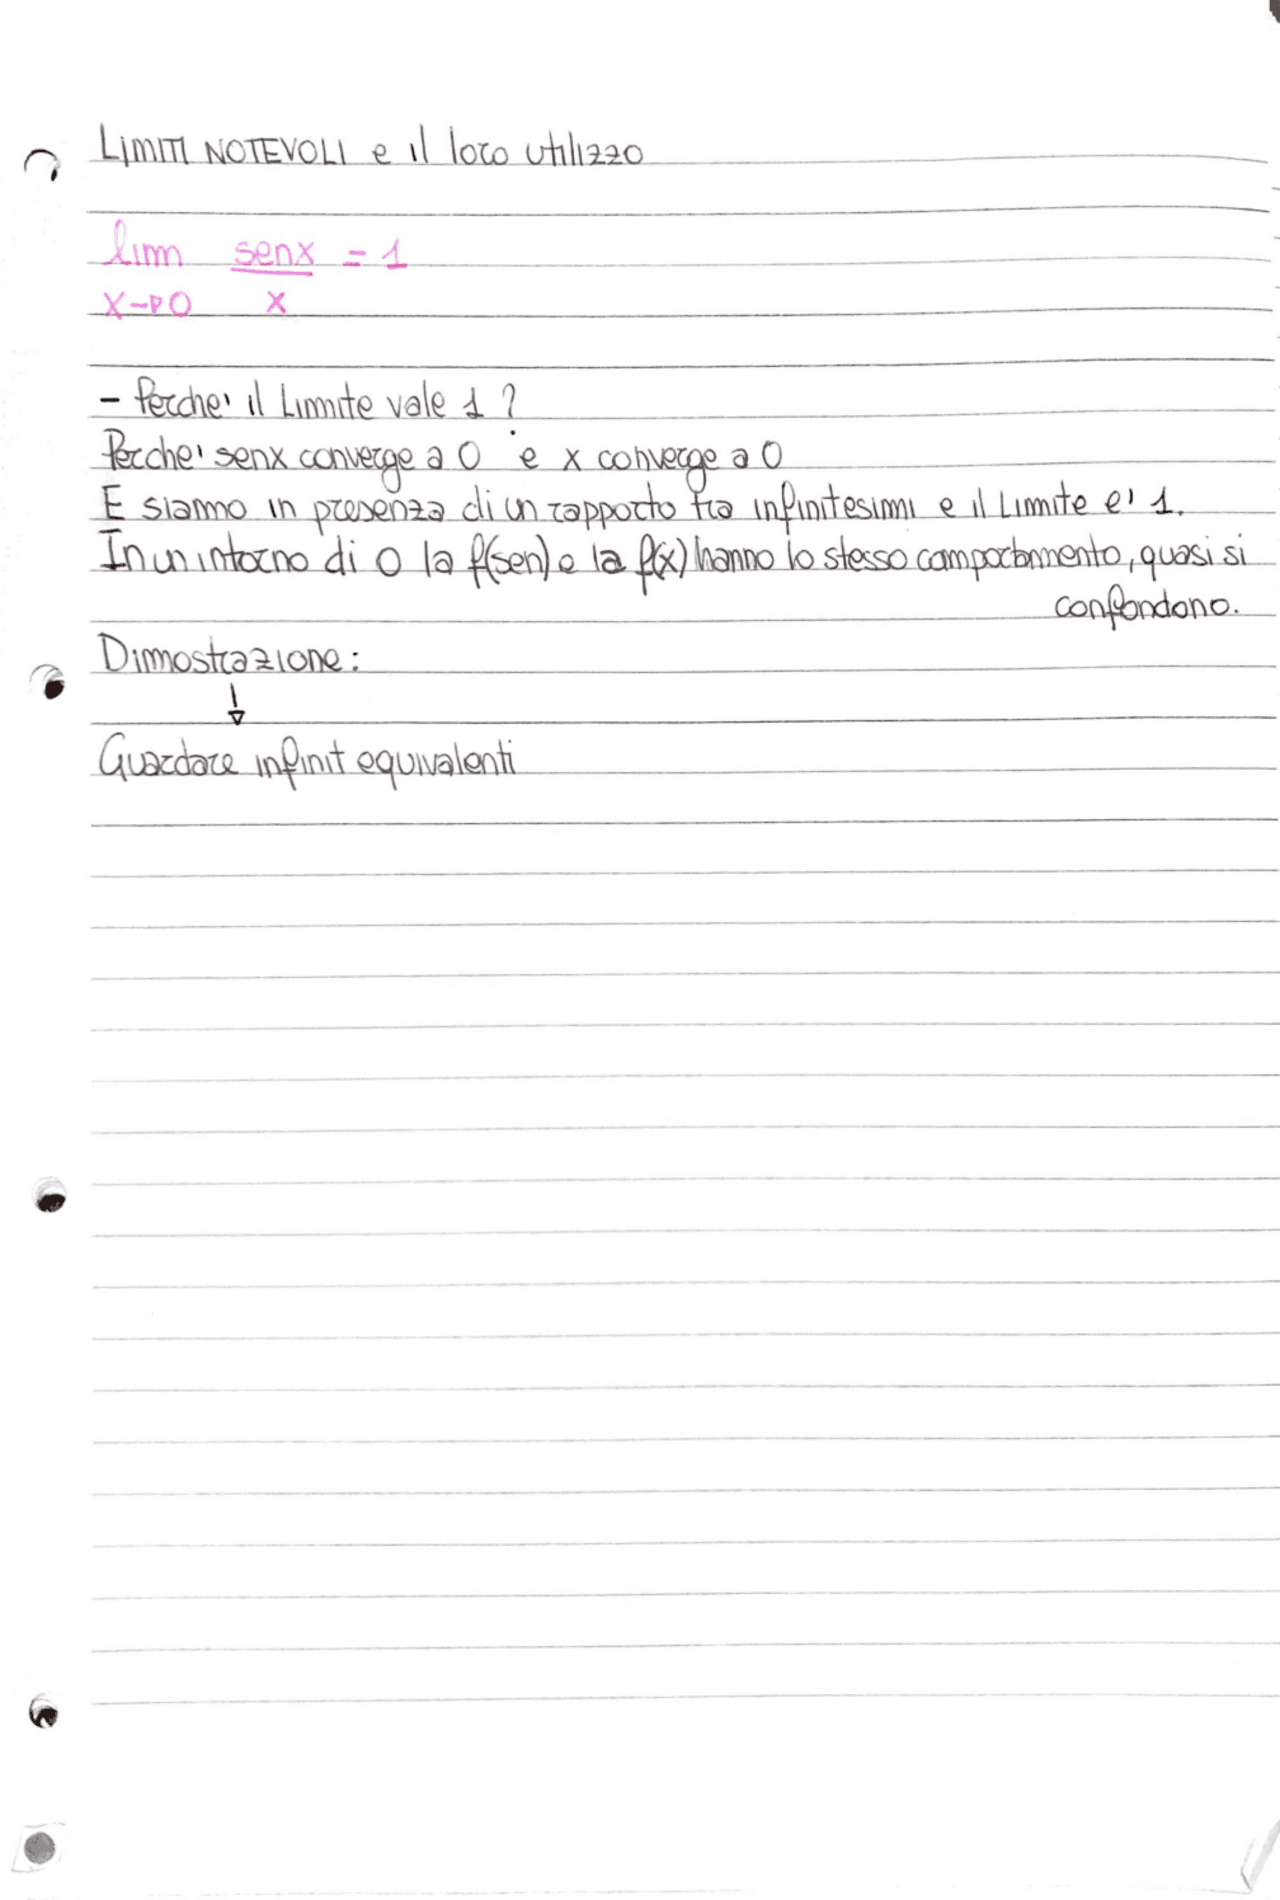 LIMITI NOTEVOLI e il loro utilizzo
lim senx = 1
x→0 x
- Perche' il Limite vale 1 ?
Perche' senx converge a 0 e x converge a 0
E siamo in presenza di un rapporto tra infinitesimi e il Limite e' 1.
In un intorno di 0 la f(sen) e la f(x) hanno lo stesso comportamento, quasi si
confondono.
Dimostrazione:
↓
Guardare infinit equivalenti